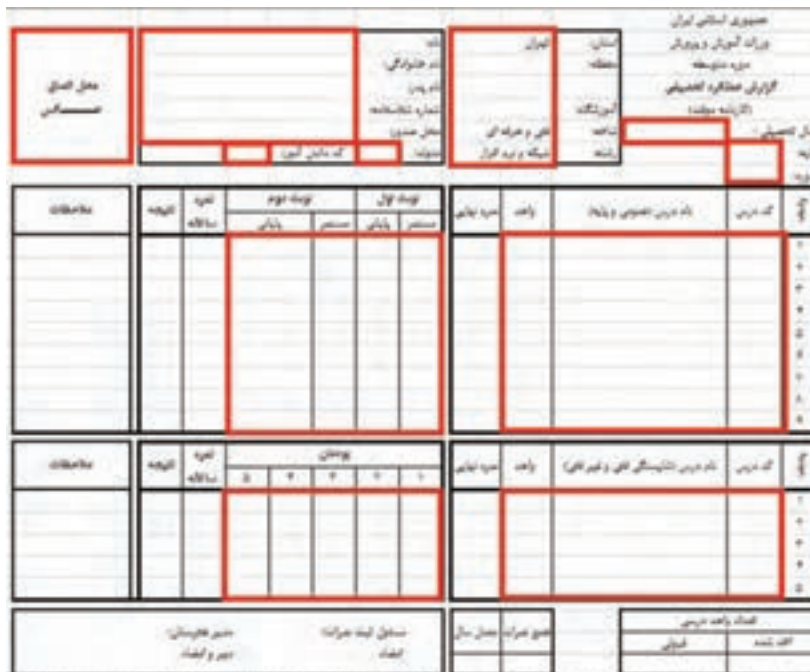 جمهوری اسلامی ایران
وزارت آموزش و پرورش
دوره متوسطه
گزارش عملکرد تحصیلی
(کارنامه موقت)
سال تحصیلی:
استان: تهران
منطقه:
آموزشگاه:
شاخه: فنی و حرفه ای
رشته: شبکه و نرم افزار
نام:
نام خانوادگی:
نام پدر:
شماره شناسنامه:
محل صدور:
متولد: کد دانش آموز:
محل الصاق
عکس
ردیف کد درس نام درس (عمومی و پایه) واحد نمره نهایی
نوبت اول نوبت دوم نمره سالانه نتیجه ملاحظات
مستمر پایانی مستمر پایانی
۱
۲
۳
۴
۵
۶
۷
۸
۹
ردیف کد درس نام درس (شایستگی فنی و غیر فنی) واحد نمره نهایی
پودمان نمره سالانه نتیجه ملاحظات
۱ ۲ ۳ ۴ ۵
۱
۲
۳
۴
۵
تعداد واحد درسی
اخذ شده قبولی
جمع نمرات معدل سال
مسئول ثبت نمرات:
امضاء
مدیر هنرستان:
مهر و امضاء